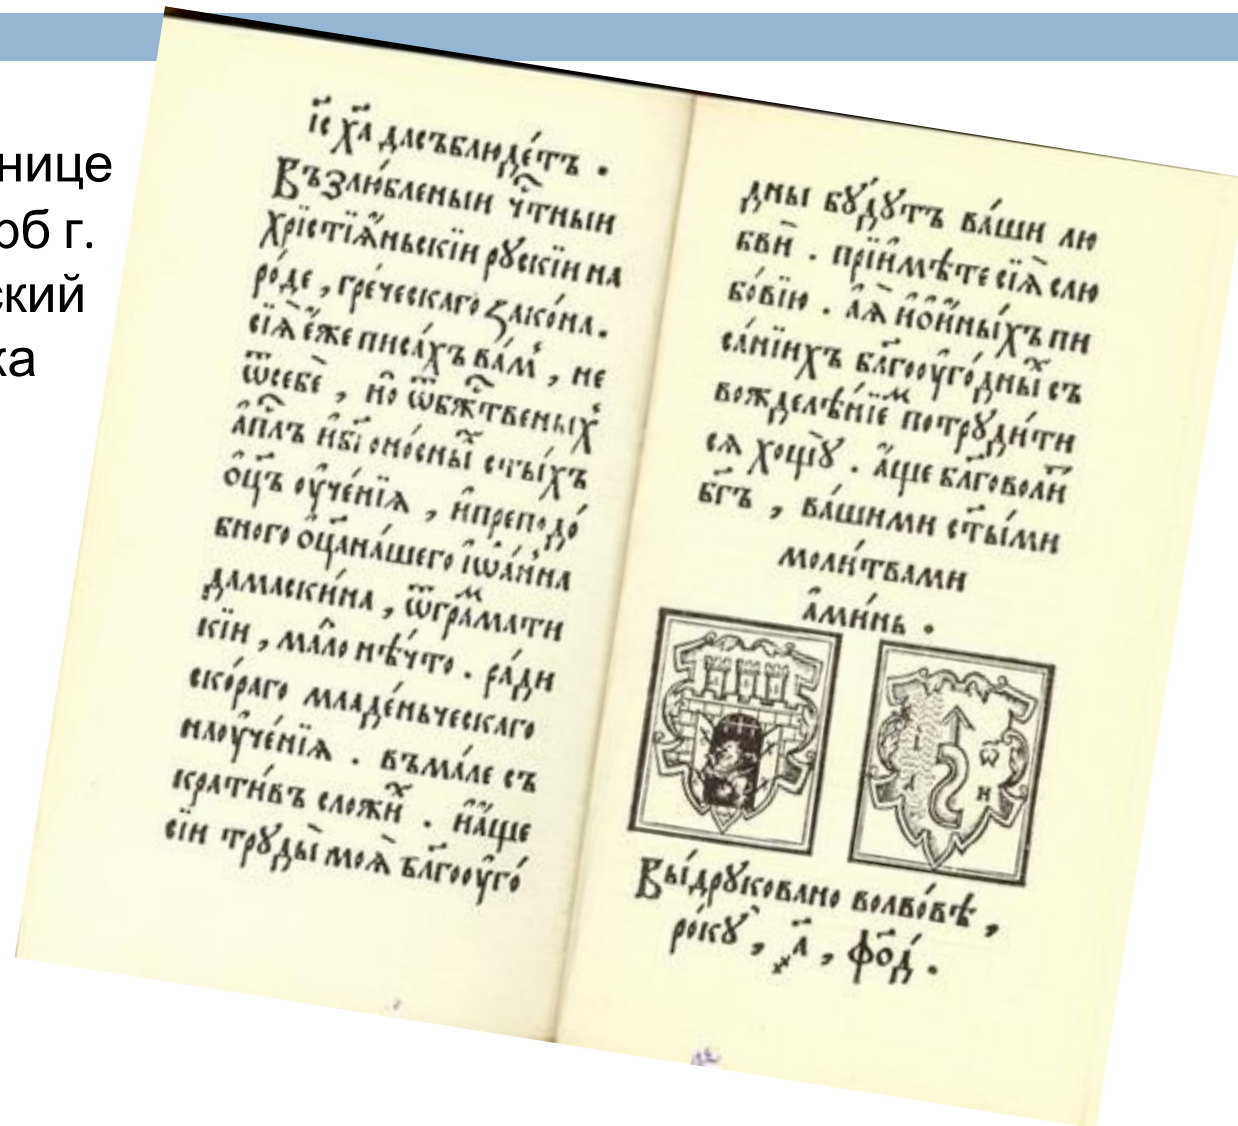 нице
рб г.
ский
ка
і҃с х҃а дасъблюде́тъ .
Възлю́бленыи ч҃тныи
хрїстїѧ́ньскїи рꙋскїи на
ро́де , гре́ческаго ꙁако́на .
сїѧ̀ є҆́же писа́хъ ва́м , не
ѿсебѐ , но ѿбж҃твеныⷯ
а҆п҃лъ и҆бг҃оно́сныⷯ ст҃ы́хъ
о҆ц҃ъ ᲂу҆че́нїѧ , и҆преподо́
бного о҆ц҃ана́шего і҆ѡа́нна
дамаски́на , ѿгра́маⷮти
кїи , ма́ло нѣ́что . ра́ди
ско́раго младе́ньческаго
наᲂуче́нїѧ . въма́ле съ
крати́въ сложи́ⷯ . и҆а҆́ще
сїи трꙋды̀ моѧ̀ бл҃гоᲂуго́
дны бꙋ́дꙋтъ ва́ши лю
бви . прїи́мѣте сїѧ̀ слю
бо́вїю . а҆́ѧ и҆ѻ҆и҆ны́хъ пи
са́нїихъ бл҃гоᲂуго́дныⷯ съ
вожделѣ́нїеⷨ потрꙋди́ти
сѧ хощꙋ̀ . а҆́ще бл҃говоли́ⷮ
бг҃ъ , ва́шими ст҃ы́ми
моли́твами
а҆ми́нь .
І
Ѡ
А
Н
Вы́дрꙋковано волво́вѣ ,
ро́кꙋ , ҂а҃ , фо҃д .